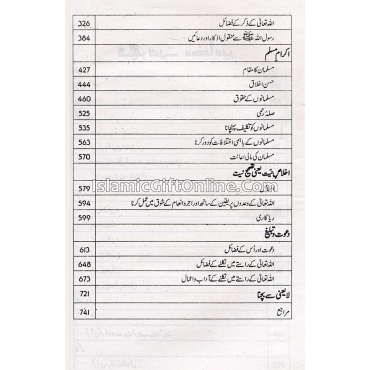 اللہ تعالیٰ کے ذکر کے فضائل 326
رسول اللہ ﷺ سے منقول اذکار اور دعائیں 384
اکرامِ مسلم
مسلمان کا مقام 427
حسن اخلاق 444
مسلمانوں کے حقوق 460
صلہ رحمی 525
مسلمانوں کو تکلیف پہنچانا 535
مسلمانوں کے باہمی اختلافات کو دور کرنا 563
مسلمان کی مالی اعانت 570
اخلاصِ نیت یعنی تصحیحِ نیت
اخلاص 579
اللہ تعالیٰ کے وعدوں پر یقین کے ساتھ اور اجر و انعام کے شوق میں عمل کرنا 594
ریا کاری 599
دعوت و تبلیغ
دعوت اور اُس کے فضائل 613
اللہ تعالیٰ کے راستے میں نکلنے کے فضائل 648
اللہ تعالیٰ کے راستے میں نکلنے کے آداب و اعمال 673
لایعنی سے بچنا 721
مراجع 741
IslamicGiftOnline.Com